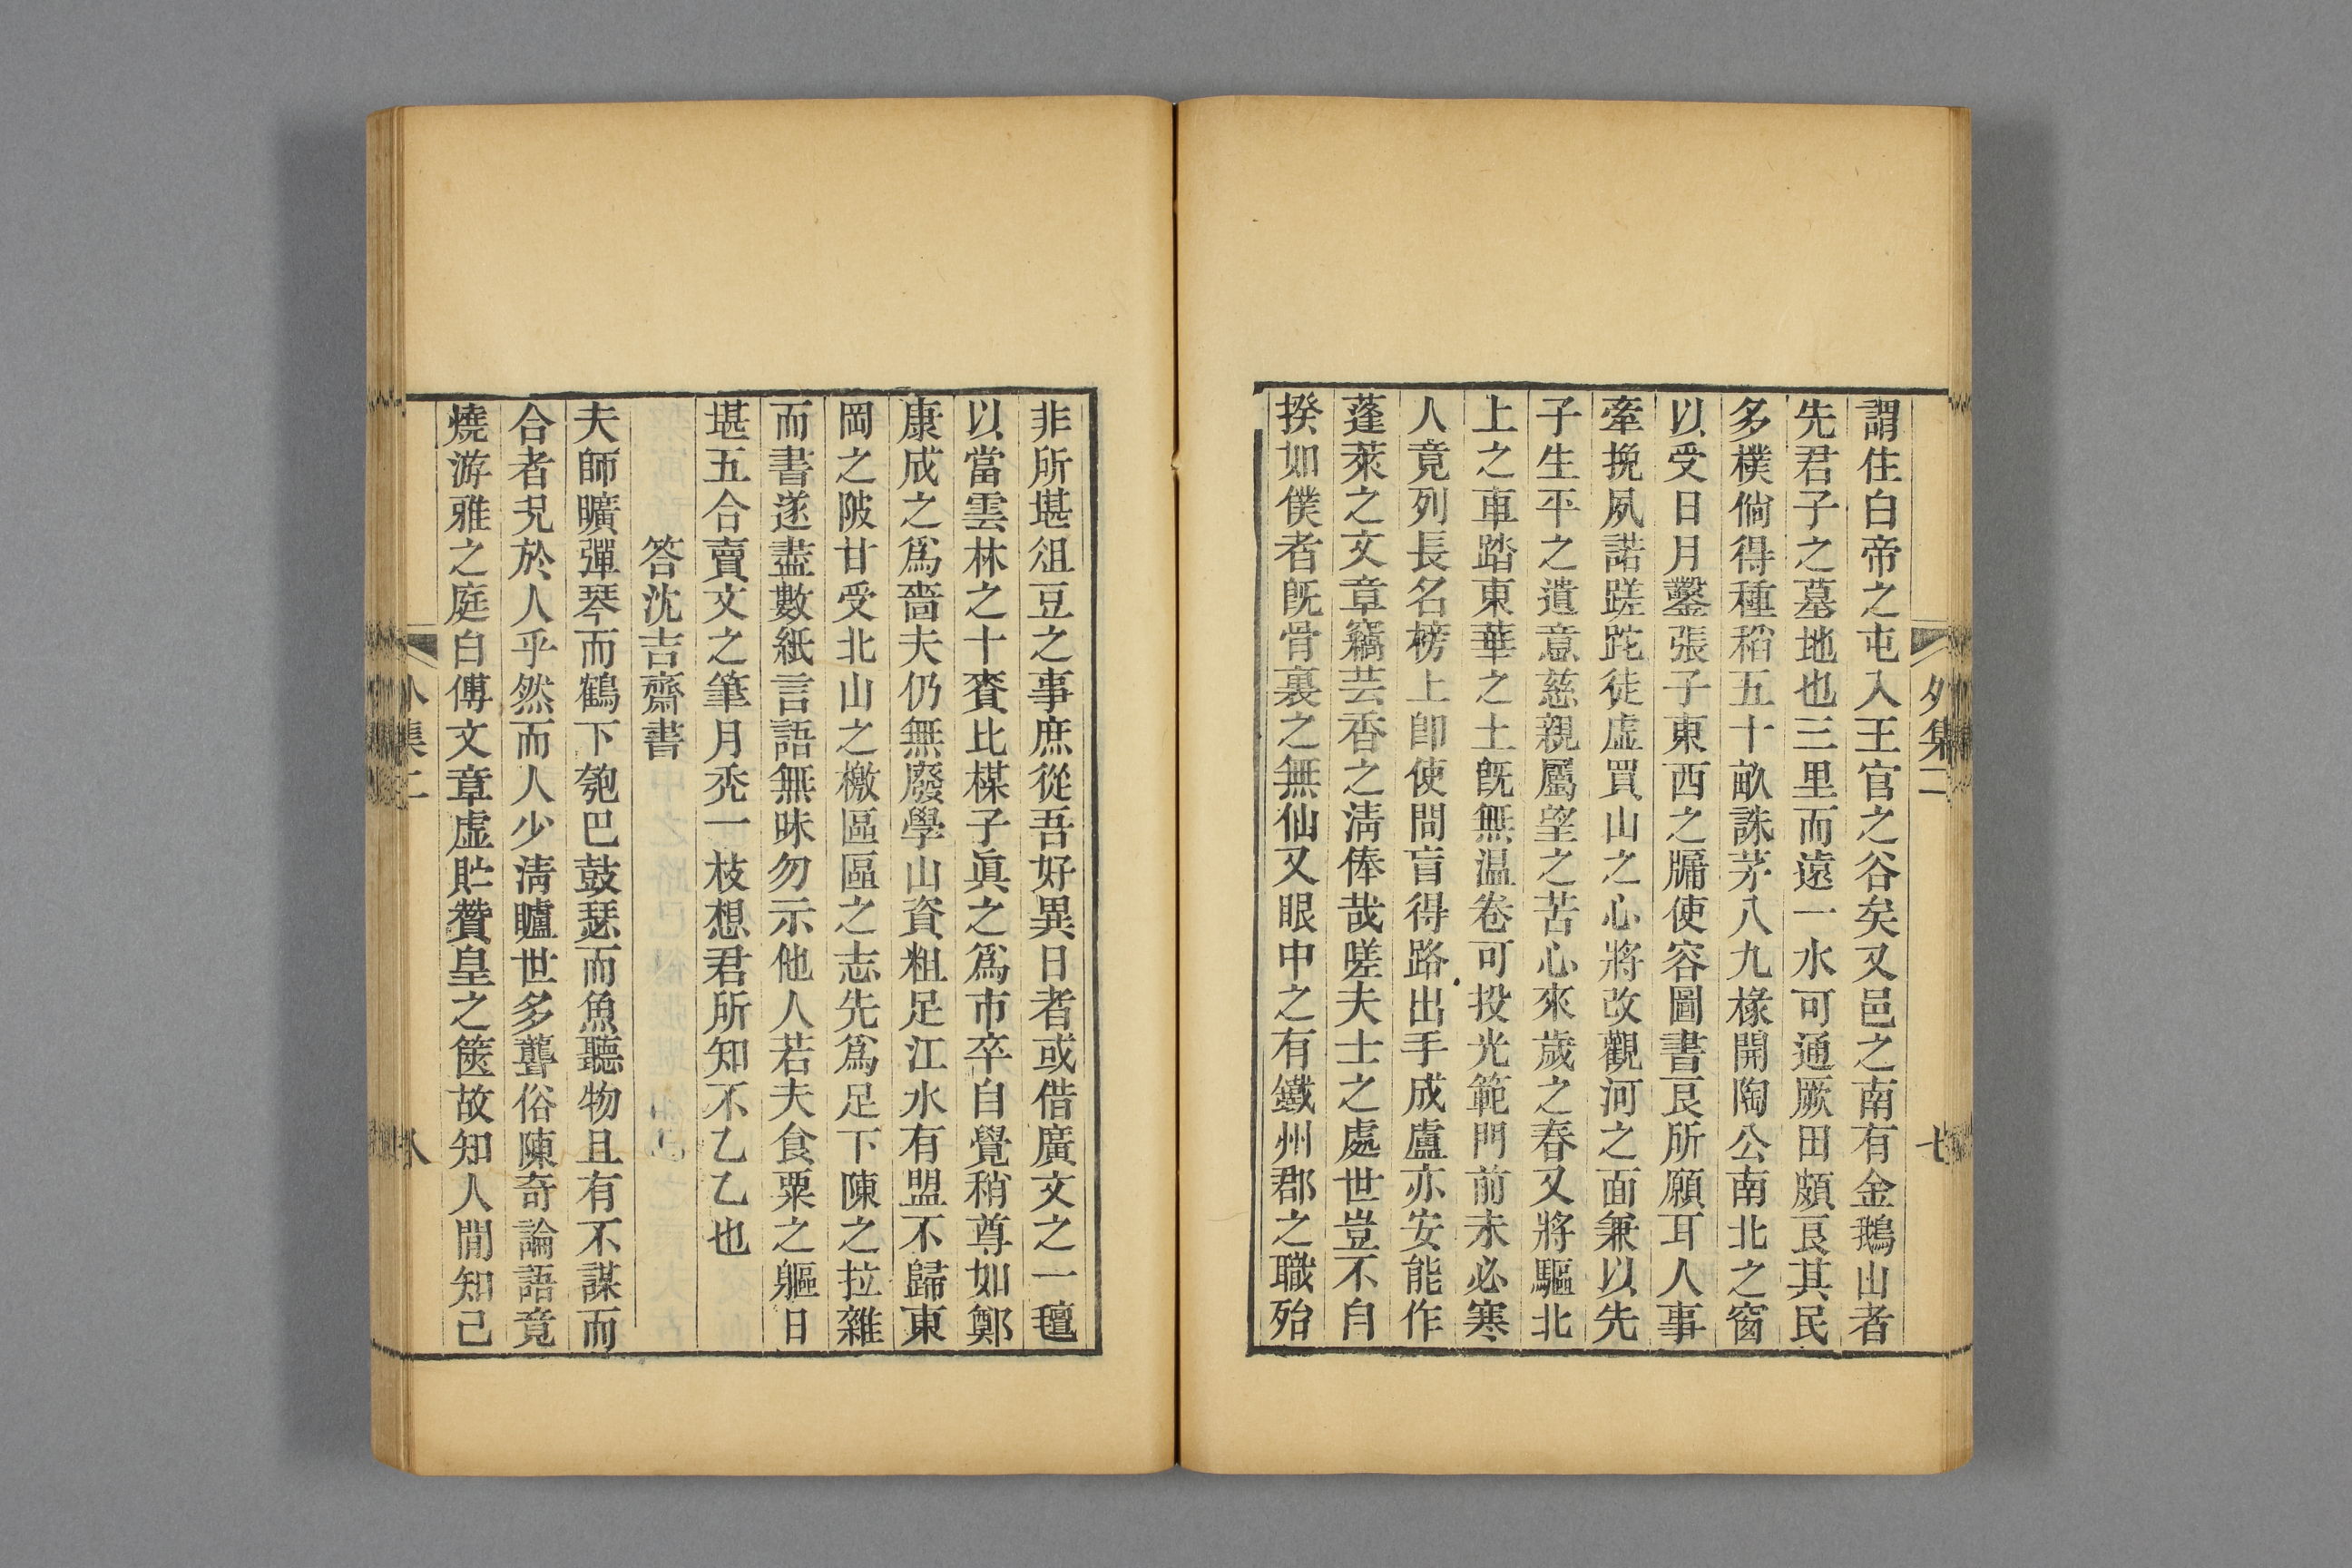 外集二
七
謂住白帝之屯入王官之谷矣又邑之南有金鵝山者
先君子之墓地也三里而遠一水可通厥田頗良其民
多樸倘得種稻五十畝誅茅八九椽開陶公南北之窗
以受日月鑿張子東西之牖使容圖書良所願耳人事
牽挽夙諾蹉跎徒虛買山之心將改觀河之面兼以先
子生平之遺意慈親屬望之苦心來歲之春又將驅北
上之車踏東華之土旣無溫卷可投光範門前未必寒
人竟列長名榜上卽使問盲得路出手成盧亦安能作
蓬萊之文章竊芸香之淸俸哉嗟夫士之處世豈不自
揆如僕者旣骨裏之無仙又眼中之有鐵州郡之職殆
非所堪俎豆之事庶從吾好異日者或借廣文之一氊
以當雲林之十賚比楳子眞之爲市卒自覺稍尊如鄭
康成之爲嗇夫仍無廢學山資粗足江水有盟不歸東
岡之陂甘受北山之檄區區之志先爲足下陳之拉雜
而書遂盡數紙言語無昧勿示他人若夫食粟之軀日
堪五合賣文之筆月禿一枝想君所知不乙乙也
答沈吉齋書
夫師曠彈琴而鶴下匏巴鼓瑟而魚聽物且有不謀而
合者況於人乎然而人少淸矑世多聾俗陳奇論語竟
燒游雅之庭白傅文章虛貯贊皇之篋故知人間知己
外集二
八